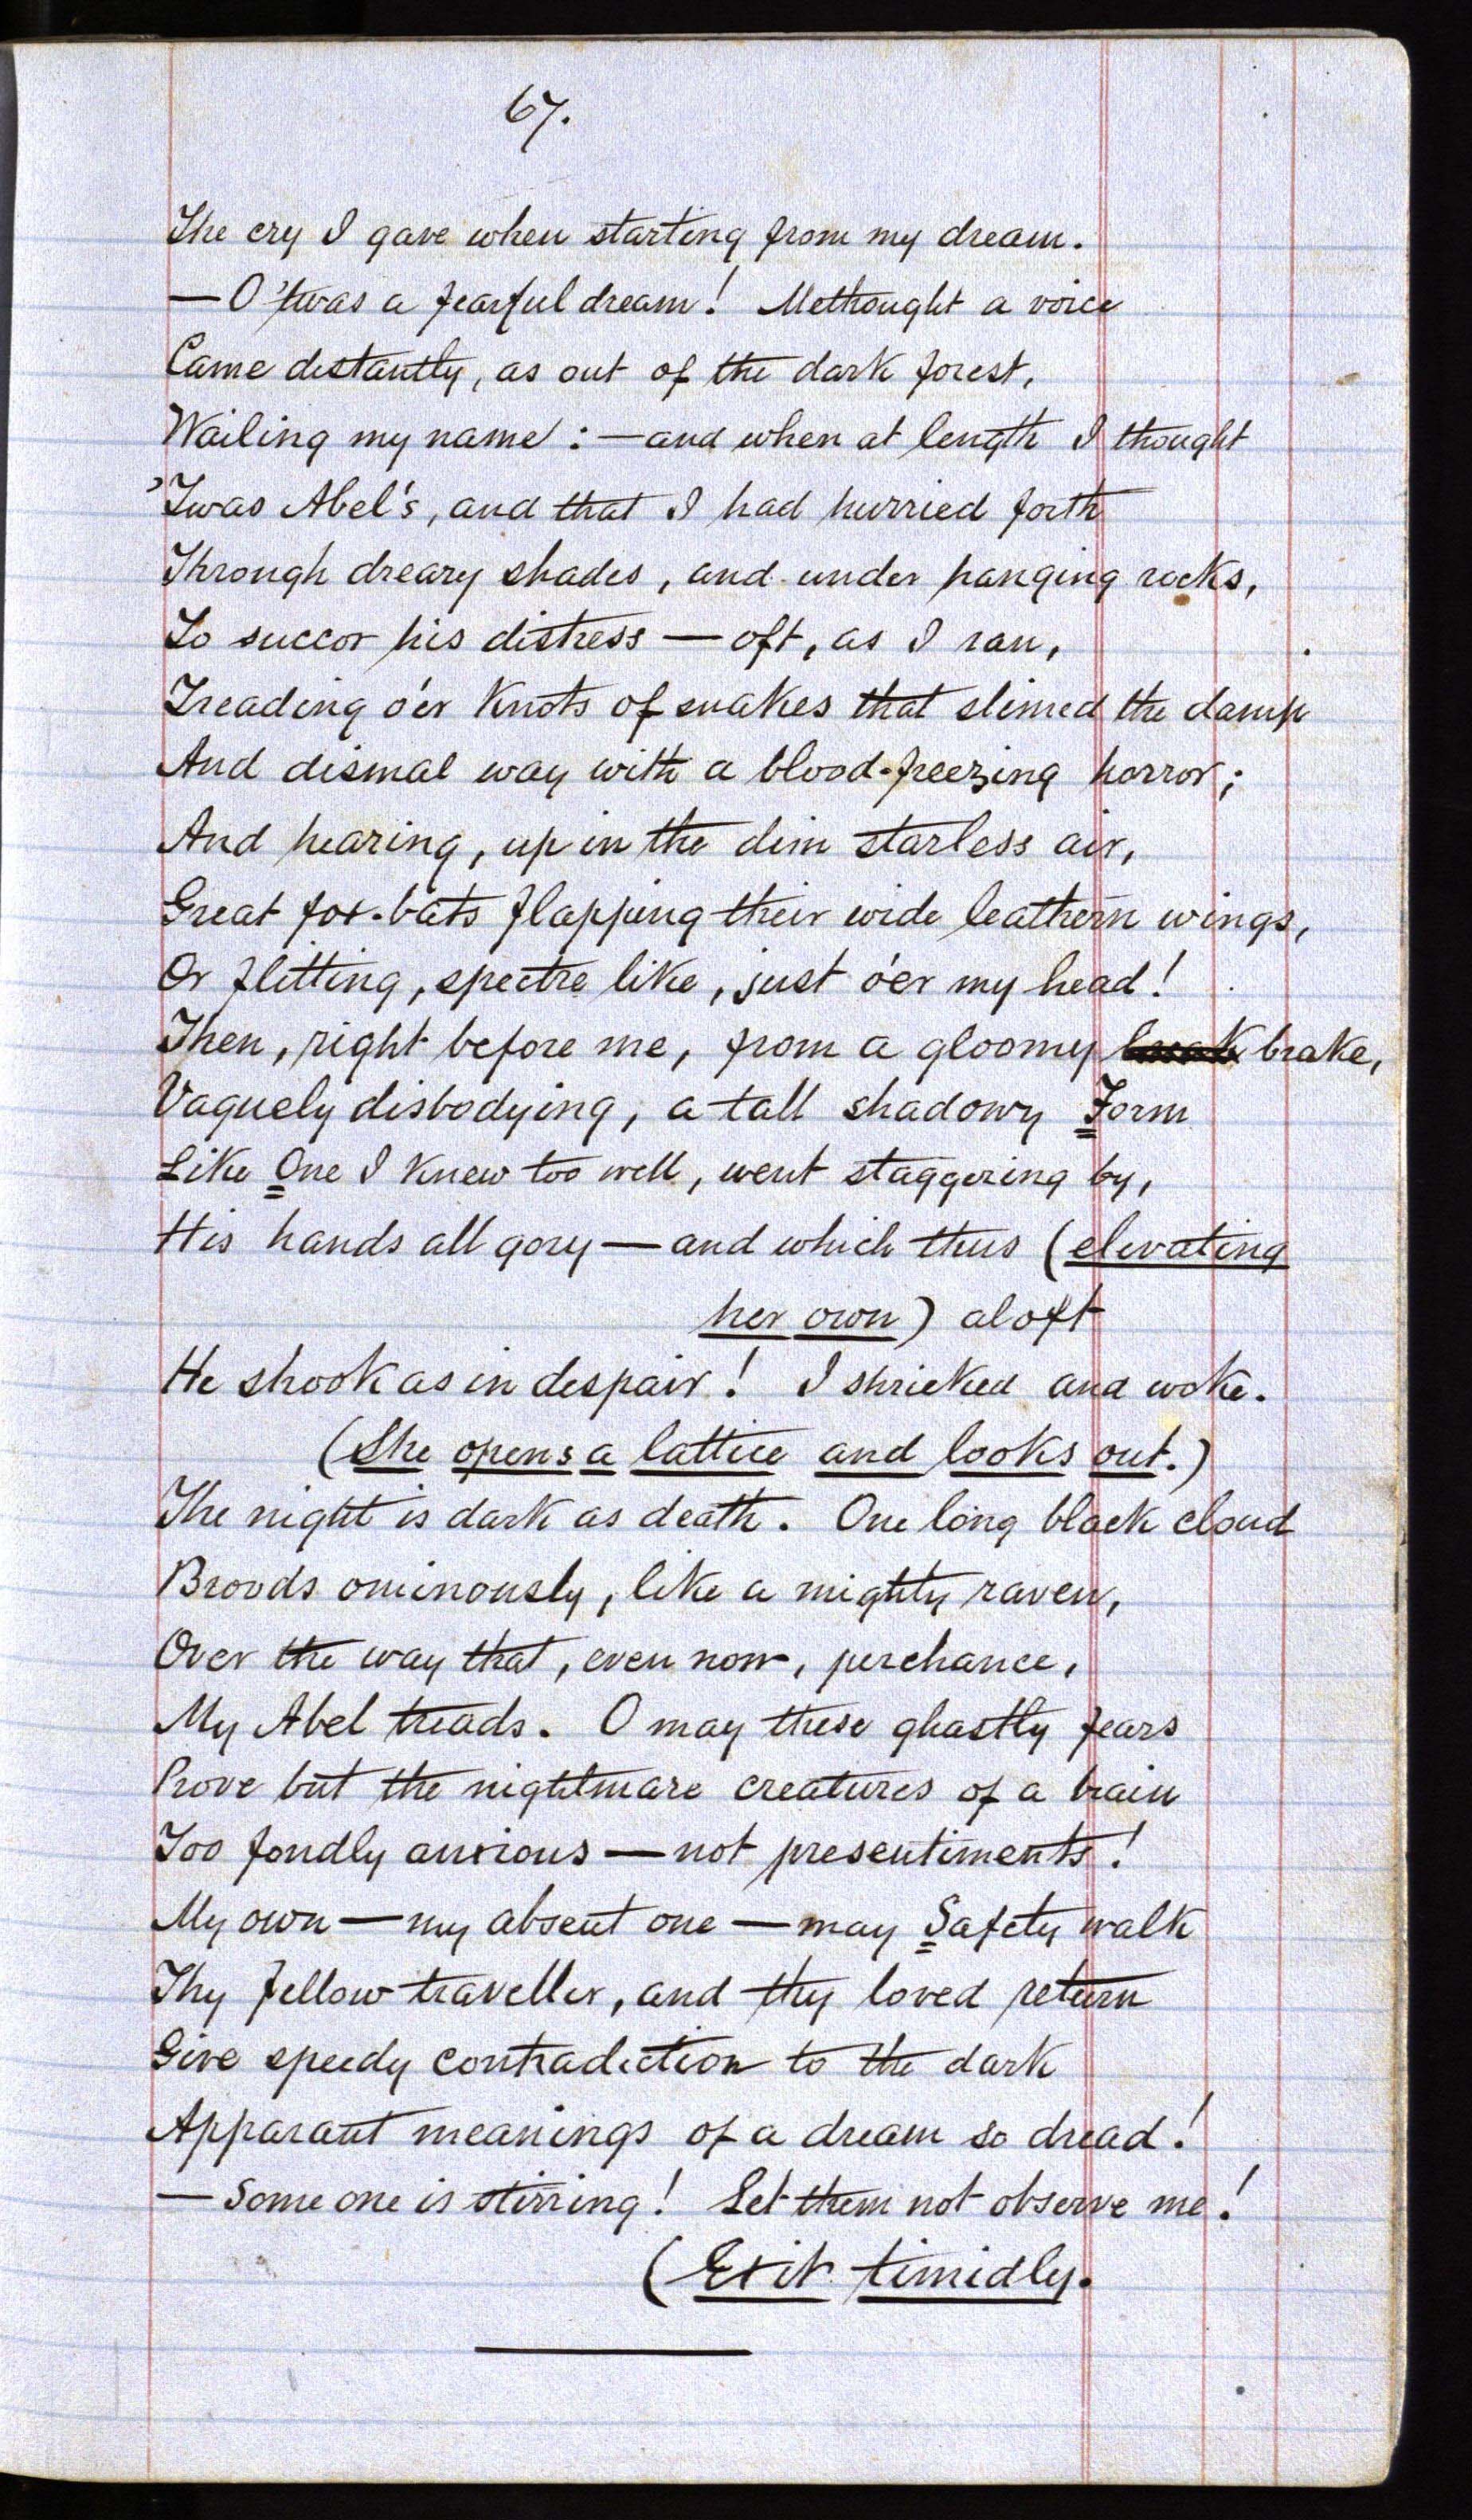 67.
The cry I gave when starting from my dream.
— O 'twas a fearful dream! Methought a voice
Came distantly, as out of the dark forest,
Wailing my name: — and when at length I thought
'Twas Abel's, and that I had hurried forth
Through dreary shades, and under hanging rocks,
To succor his distress — oft, as I ran,
Treading o'er knots of snakes that slimed the damp
And dismal way with a blood-freezing horror;
And hearing, up in the dim starless air,
Great fox-bats flapping their wide leathern wings,
Or flitting, spectre like, just o'er my head!
Then, right before me, from a gloomy brake,
Vaguely disbodying, a tall shadowy Form
Like One I knew too well, went staggering by,
His hands all gory — and which thus (elevating
her own) aloft
He shook as in despair! I shrieked and woke.
(She opens a lattice and looks out.)
The night is dark as death. One long black cloud
Broods ominously, like a mighty raven,
Over the way that, even now, perchance,
My Abel treads. O may these ghastly fears
Prove but the nightmare creatures of a brain
Too fondly anxious — not presentiments!
My own — my absent one — may Safety walk
Thy fellow traveller, and thy loved return
Give speedy contradiction to the dark
Apparant meanings of a dream so dread!
— Some one is stirring! Let them not observe me!
(Exit timidly.